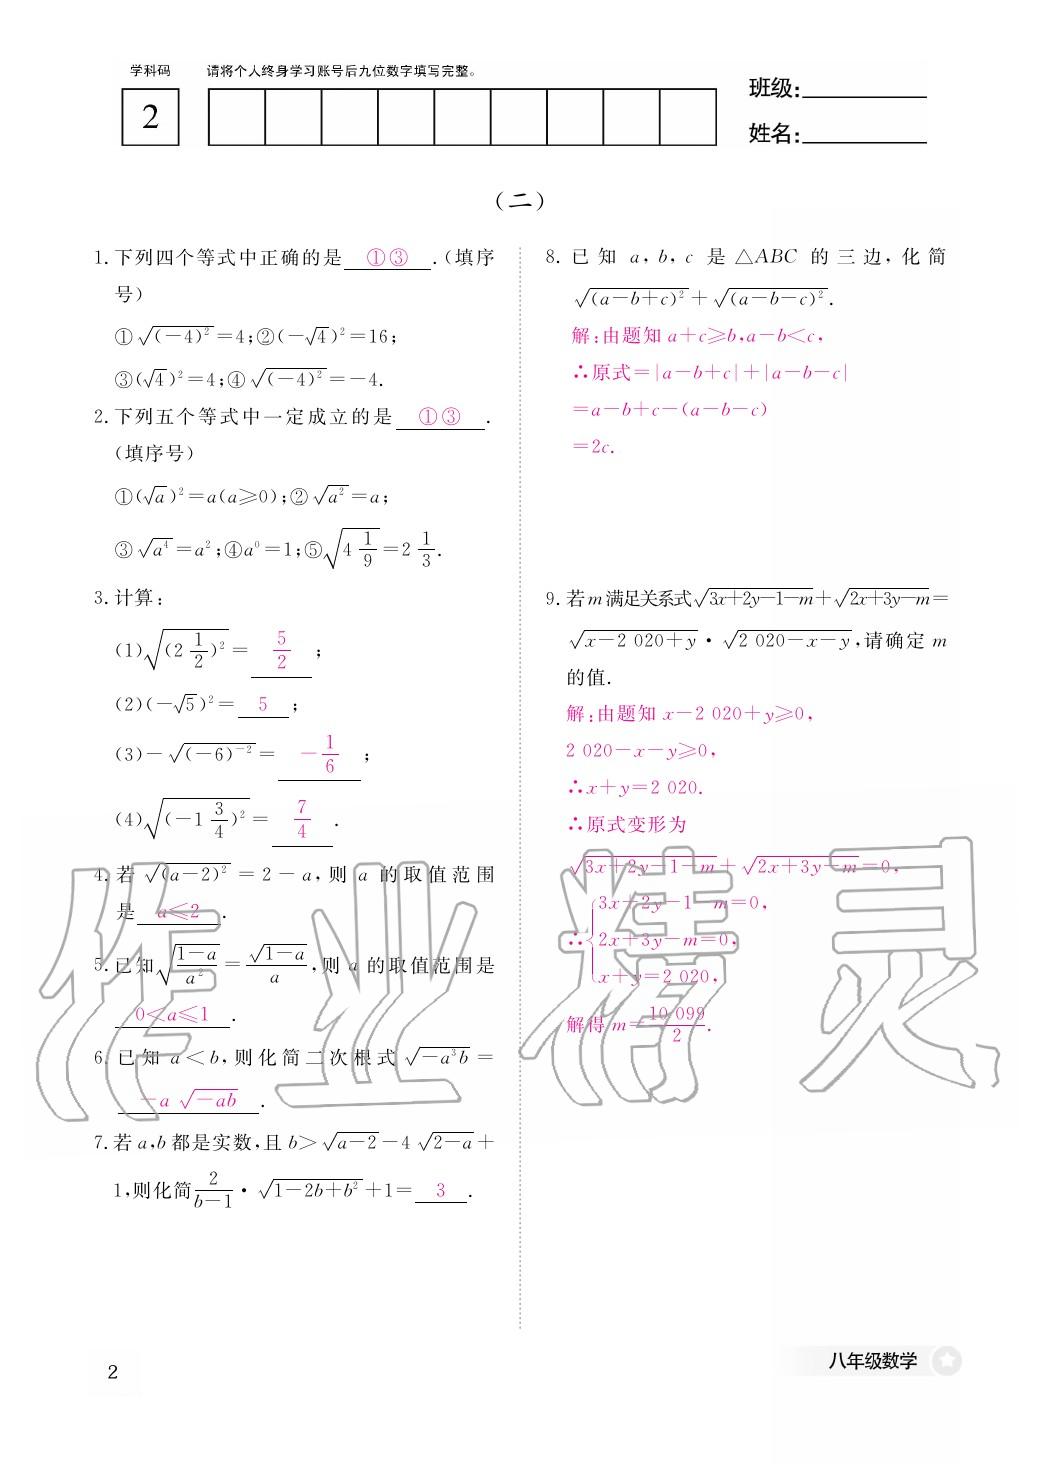 学科码
请将个人终身学习账号后九位数字填写完整。
2
班级:
姓名:
(二)
1. 下列四个等式中正确的是 ①③ .(填序
号)
①√(-4)²=4;②(-√4)²=16;
③(√4)²=4;④√(-4)²=-4.
2. 下列五个等式中一定成立的是 ①③ .
(填序号)
①(√a)²=a(a≥0);②√a²=a;
③√a⁴=a²;④a⁰=1;⑤√(4 1/9)=2 1/3.
3. 计算:
(1)√(2 1/2)²= 5/2 ;
(2)(-√5)²= 5 ;
(3)-√(-6)⁻²= -1/6 ;
(4)√(-1 3/4)²= 7/4 .
4. 若 √(a-2)² = 2-a,则 a 的取值范围
是 a≤2 .
5. 已知√((1-a)/a²)=√(1-a)/a,则 a 的取值范围是
0<a≤1 .
6. 已知 a<b,则化简二次根式 √(-a³b) =
-a √(-ab) .
7. 若 a,b 都是实数,且 b>√(a-2)-4√(2-a)+
1,则化简2/(b-1)·√(1-2b+b²)+1= 3 .
8. 已知 a,b,c 是 △ABC 的三边,化简
√(a-b+c)²+√(a-b-c)².
解:由题知 a+c≥b,a-b<c,
∴原式=|a-b+c|+|a-b-c|
=a-b+c-(a-b-c)
=2c.
9. 若 m 满足关系式√(3x+2y-1-m)+√(2x+3y-m)=
√(x-2 020+y)·√(2 020-x-y),请确定 m
的值.
解:由题知 x-2 020+y≥0,
2 020-x-y≥0,
∴x+y=2 020.
∴原式变形为
√(3x+2y-1-m)+√(2x+3y-m)=0,
3x+2y-1-m=0,
∴{2x+3y-m=0,
x+y=2 020,
解得 m=10 099/2.
作业精灵
2
八年级数学